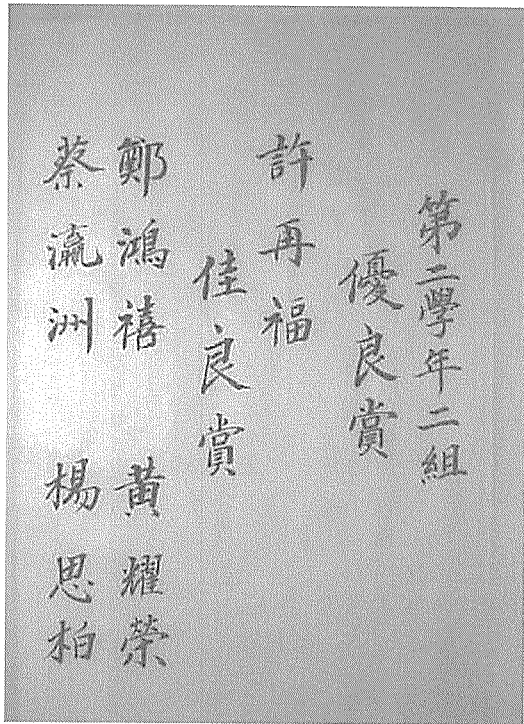 第二學年二組
優良賞
許再福
佳良賞
鄭鴻禧 黃耀榮
蔡瀛洲 楊思柏